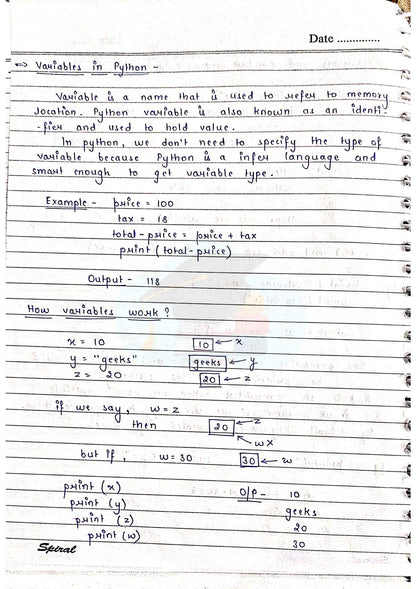 Date ..............
⇒ Variables in Python -
Variable is a name that is used to refer to memory
location. Python variable is also known as an identi-
-fier and used to hold value.
In python, we don't need to specify the type of
variable because Python is a infer language and
smart enough to get variable type.
Example - price = 100
tax = 18
total-price = price + tax
print (total-price)
Output - 118
How variables work ?
x = 10 10 ← x
y = "geeks" geeks ← y
z = 20 20 ← z
if we say, w = z
then 20 ← z
← w x
but if, w = 30 30 ← w
print (x) O/P - 10
print (y) geeks
print (z) 20
print (w) 30
Spiral